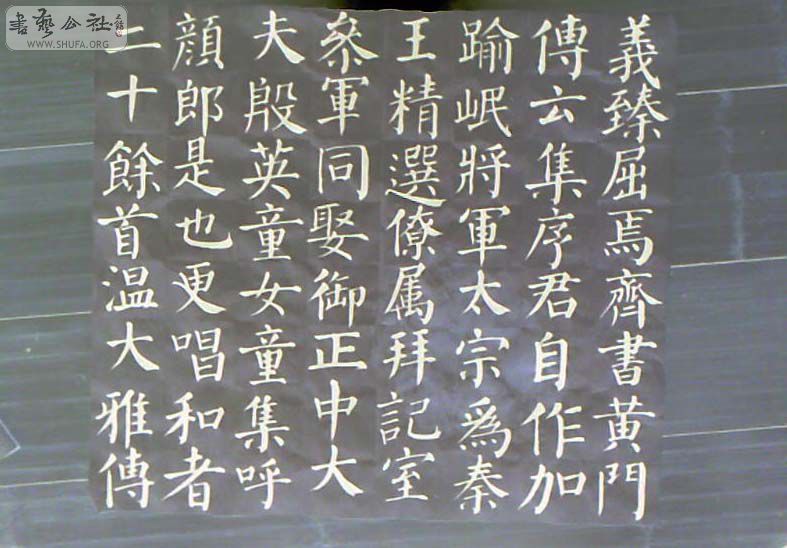 義臻屈焉齊書黄門
傳云集序君自作加
踰岷將軍太宗為秦
王精選僚属拜記室
叅軍同娶御正中大
夫殷英童女童集呼
顔郎是也更唱和者
二十餘首温大雅傳
書藝公社
WWW.SHUFA.ORG